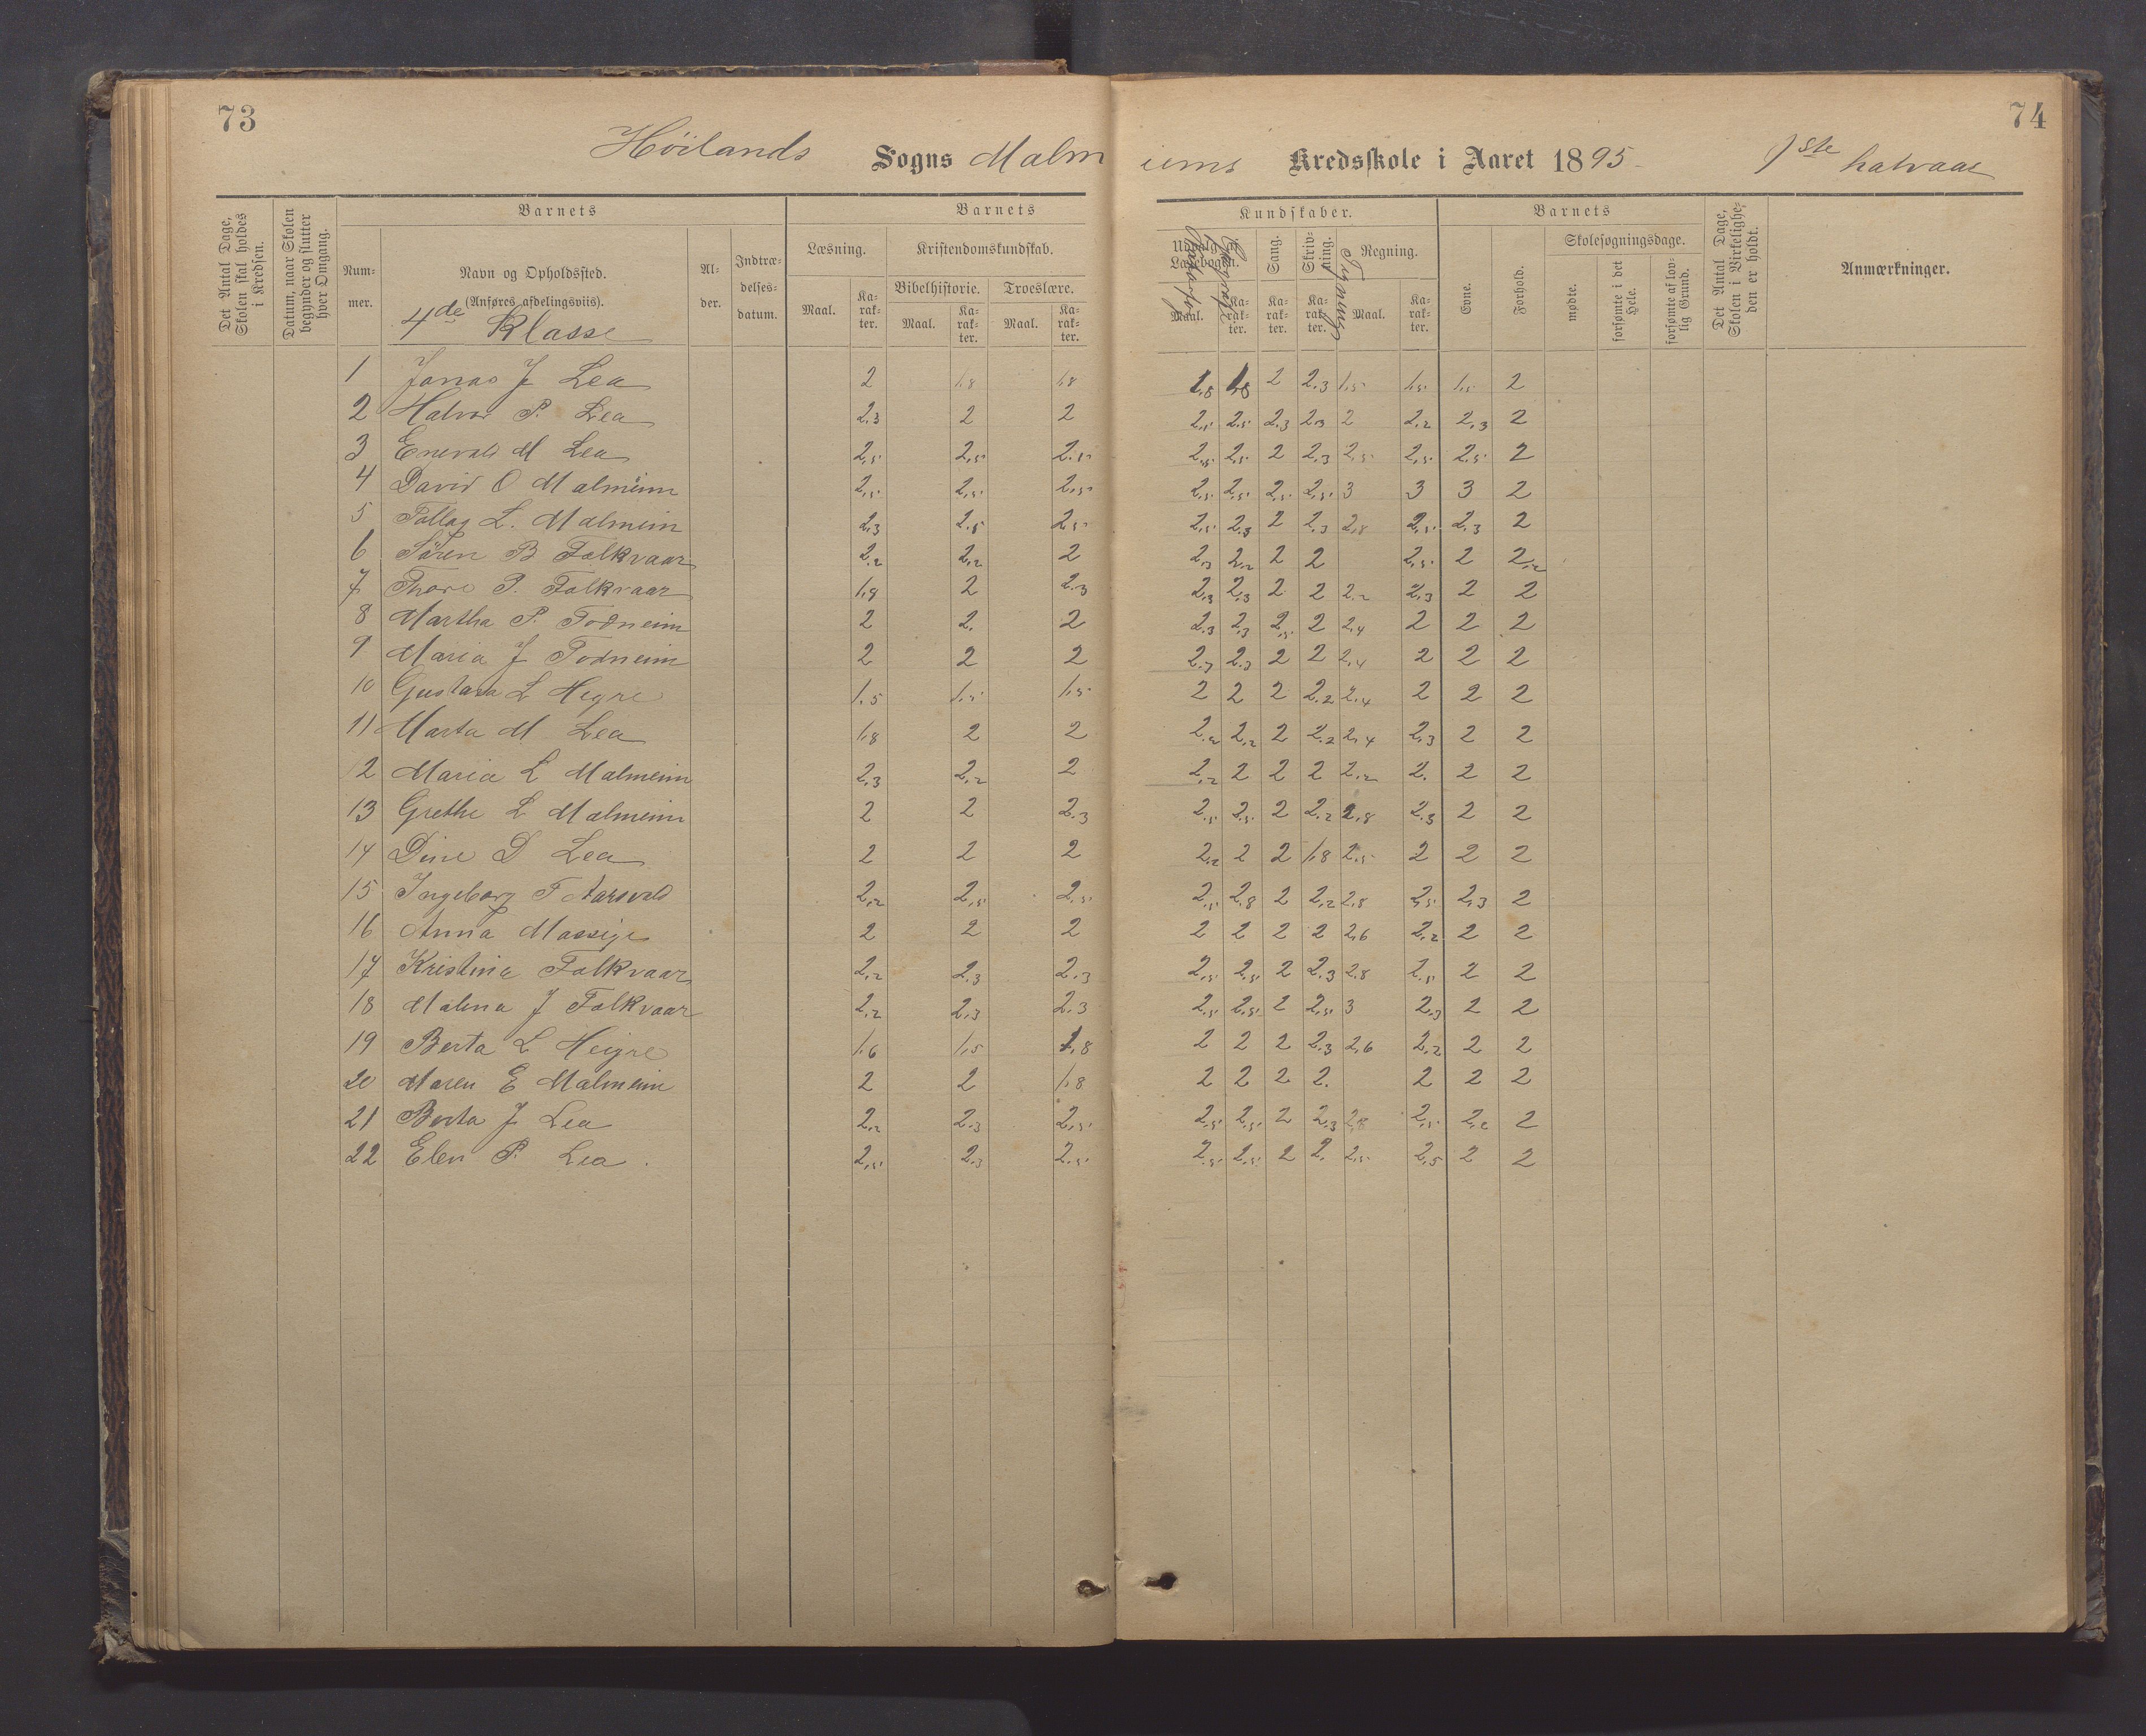 73
74
Höilands Sogns Malmeims Kredsskole i Aaret 1895 1ste halvaar
Det Antal Dage, Skolen skal holdes i Kredsen.
Datum, naar Skolen begynder og slutter hver Omgang.
Barnets
Nummer.
Navn og Opholdssted.
(Anføres afdelingsviis).
4de Klasse
Alder.
Indtrædelsesdatum.
Barnets Kundskaber.
Læsning.
Maal.
Karakter.
Kristendomskundskab.
Bibelhistorie.
Maal.
Karakter.
Troeslære.
Maal.
Karakter.
Udvalg af Læsebogen.
Maal.
Karakter.
Sang.
Karakter.
Skrivning.
Karakter.
Regning.
Maal.
Karakter.
Barnets
Evne.
Forhold.
Skolesøgningsdage.
mødte.
forsømte i det Hele.
forsømte af lovlig Grund.
Det Antal Dage, Skolen i Virkeligheden er holdt.
Anmærkninger.
1 Jonas J Lea 2 1,8 1,8 1,8 1,8 2 2,3 1,5 1,5 1,5 2
2 Halvor P. Lea 2,3 2 2 2,5 2,5 2,3 2,3 2 2,2 2,3 2
3 Enevald M Lea 2,5 2,5 2,5 2,5 2,5 2 2,3 2,5 2,5 2,5 2
4 David O Malmeim 2,5 2,5 2,5 2,5 2,5 2,5 2,5 3 3 3 2
5 Tollag L. Malmeim 2,3 2,5 2,5 2,5 2,3 2 2,3 2,8 2,5 2,3 2
6 Sören B Folkvaar 2,2 2,2 2 2,3 2,2 2 2 2,5 2 2,2
7 Thore P. Folkvaar 1,8 2 2,3 2,3 2,3 2 2 2,2 2,3 2 2
8 Martha P. Todneim 2 2. 2 2,3 2,3 2,5 2 2,4 2 2 2
9 Maria J Todneim 2 2 2 2,3 2,3 2 2 2,4 2 2 2
10 Gustava L Hegre 1,5 1,5 1,5 2 2 2 2,2 2,4 2 2 2
11 Marta M Lea 1,8 2 2 2,2 2,2 2 2,2 2,4 2,3 2 2
12 Maria L Malmeim 2,3 2,2 2 2,2 2 2 2 2,2 2. 2 2
13 Grethe L Malmeim 2 2 2,3 2,5 2,5 2 2,2 2,8 2,3 2 2
14 Dine D Lea 2 2 2 2,2 2 2 1,8 2,5 2 2 2
15 Ingeborg F Aarsvold 2,2 2,5 2,5 2,5 2,8 2 2,2 2,8 2,5 2,3 2
16 Anna Massige 2 2 2 2 2 2 2 2,6 2,2 2 2
17 Kristina Folkvaar 2,2 2,3 2,3 2,5 2,5 2 2,3 2,8 2,5 2 2
18 Malena J Folkvaar 2,2 2,3 2,3 2,5 2,5 2 2,5 3 2,3 2 2
19 Berta L Heigre 1,6 1,5 1,8 2 2 2 2,3 2,6 2,2 2 2
20 Maren E Malmeim 2 2 1,8 2 2 2 2. 2 2 2
21 Berta J Lea 2,2 2,3 2,5 2,5 2,5 2 2,3 2,8 2,5 2,2 2
22 Elen P. Lea 2,5 2,3 2,5 2,5 2,5 2 2. 2,5 2,5 2 2